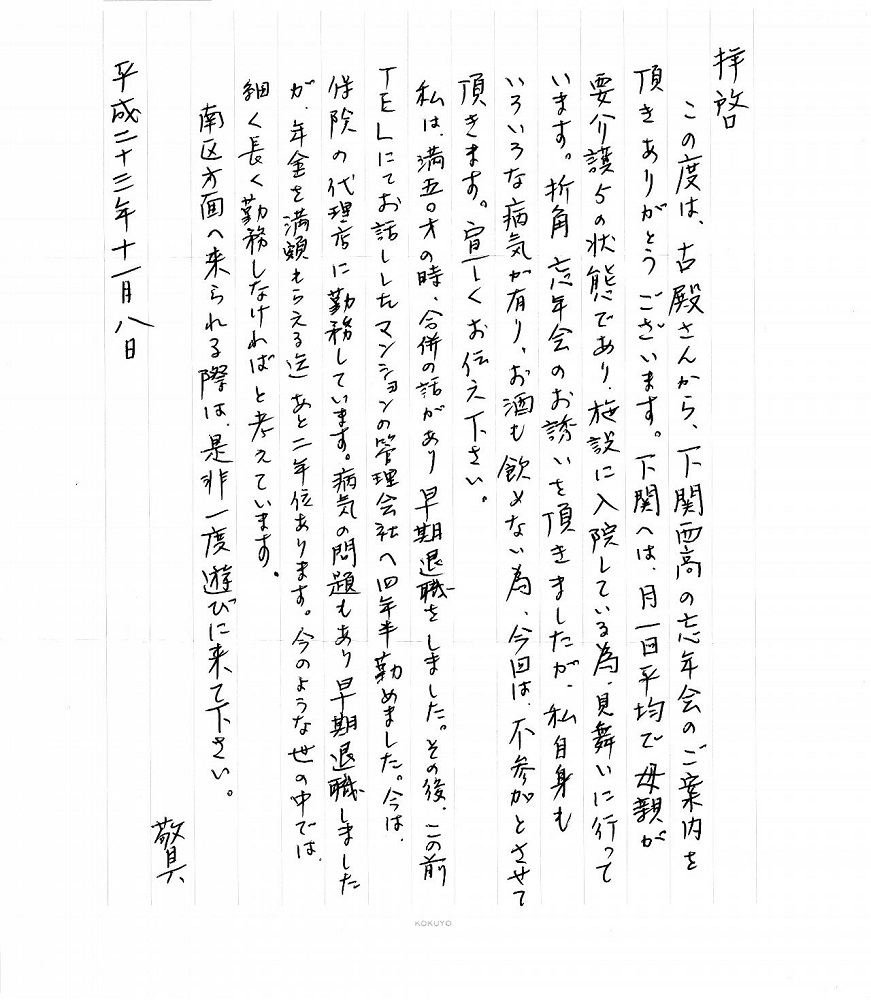 拝啓
この度は、古殿さんから、下関西高の忘年会のご案内を
頂きありがとうございます。下関へは、月一回平均で母親が
要介護5の状態であり、施設に入院している為、見舞いに行って
います。折角忘年会のお誘いを頂きましたが、私自身も
いろいろな病気が有り、お酒も飲めない為、今回は、不参加とさせて
頂きます。宜しくお伝え下さい。
私は、満五〇才の時、合併の話があり早期退職をしました。その後、この前
TELにてお話ししたマンションの管理会社へ四年半勤めました。今は、
保険の代理店に勤務しています。病気の問題もあり早期退職しました
が、年金を満額もらえる迄あと二年位あります。今のような世の中では、
細く長く勤務しなければと考えています。
南区方面へ来られる際は、是非一度遊びに来て下さい。
敬具
平成二十三年十一月八日
KOKUYO